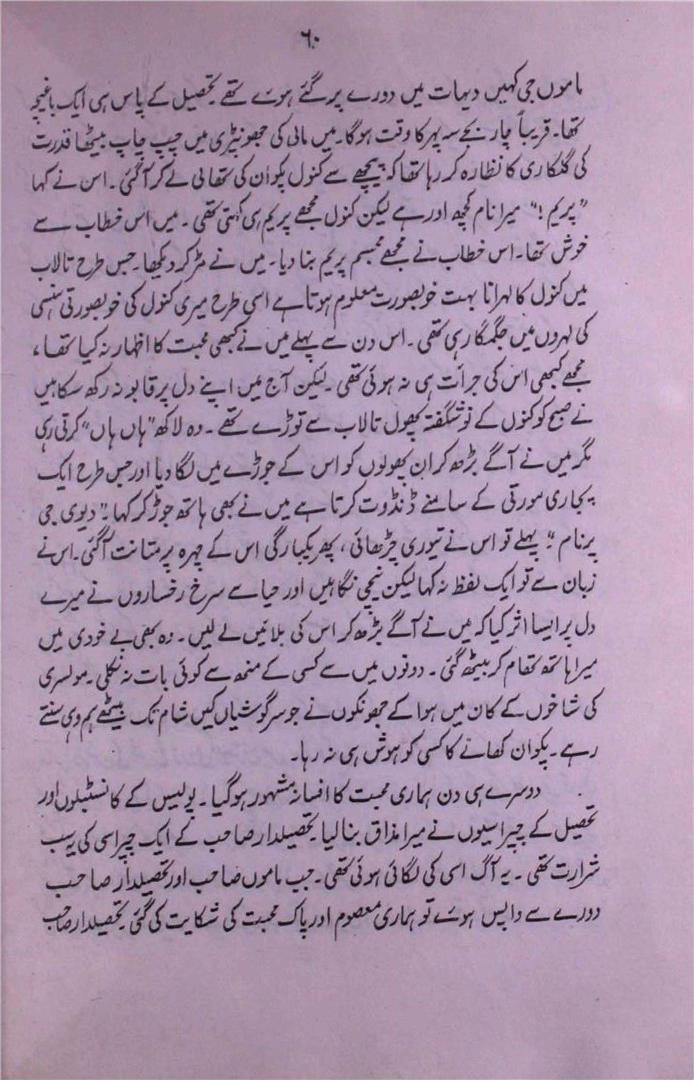 ۶۰
ماموں جی کہیں دیہات میں دورے پر گئے ہوئے تھے۔ تحصیل کے پاس ہی ایک باغیچہ
تھا۔ قریباً چار بجے سہ پہر کا وقت ہوگا۔ میں مالی کی جھونپڑی میں چپ چاپ بیٹھا قدرت
کی گلکاری کا نظارہ کر رہا تھا کہ پیچھے سے کنول پکوان کی تھالی لے کر آ گئی۔ اس نے کہا
"پریم!" میرا نام کچھ اور ہے لیکن کنول مجھے پریم ہی کہتی تھی۔ میں اس خطاب سے
خوش تھا۔ اس خطاب نے مجھے مجسم پریم بنا دیا۔ میں نے مڑ کر دیکھا۔ جس طرح تالاب
میں کنول کا لہرانا بہت خوبصورت معلوم ہوتا ہے اسی طرح میری کنول کی خوبصورتی ہنسی
کی لہروں میں جگمگا رہی تھی۔ اس دن سے پہلے میں نے کبھی محبت کا اظہار نہ کیا تھا،
مجھے کبھی اس کی جرأت ہی نہ ہوئی تھی۔ لیکن آج میں اپنے دل پر قابو نہ رکھ سکا میں
نے صبح کو کنول کے نوشگفتہ پھول تالاب سے توڑے تھے۔ وہ لاکھ "ہاں ہاں" کرتی رہی
مگر میں نے آگے بڑھ کر ان پھولوں کو اس کے جوڑے میں لگا دیا اور جس طرح ایک
پجاری مورتی کے سامنے ڈنڈوت کرتا ہے میں نے بھی ہاتھ جوڑ کر کہا۔ "دیوی جی
پرنام" پہلے تو اس نے تیوری چڑھائی، پھر یکبارگی اس کے چہرہ پر متانت آ گئی۔ اس نے
زبان سے تو ایک لفظ نہ کہا لیکن نیچی نگاہیں اور حیا سے سرخ رخساروں نے میرے
دل پر ایسا اثر کیا کہ میں نے آگے بڑھ کر اس کی بلائیں لے لیں۔ وہ بھی بے خودی میں
میرا ہاتھ تھام کر بیٹھ گئی۔ دونوں میں سے کسی کے منھ سے کوئی بات نہ نکلی۔ مولسری
کی شاخوں کے کان میں ہوا کے جھونکوں نے جو سرگوشیاں کیں شام تک بیٹھے ہم وہی سنتے
رہے۔ پکوان کھانے کا کسی کو ہوش ہی نہ رہا۔
دوسرے ہی دن ہماری محبت کا افسانہ مشہور ہو گیا۔ پولیس کے کانسٹیبلوں اور
تحصیل کے چپراسیوں نے میرا مذاق بنا لیا۔ تحصیلدار صاحب کے ایک چپراسی کی یہ سب
شرارت تھی۔ یہ آگ اسی کی لگائی ہوئی تھی۔ جب ماموں صاحب اور تحصیلدار صاحب
دورے سے واپس ہوئے تو ہماری معصوم اور پاک محبت کی شکایت کی گئی۔ تحصیلدار صاحب